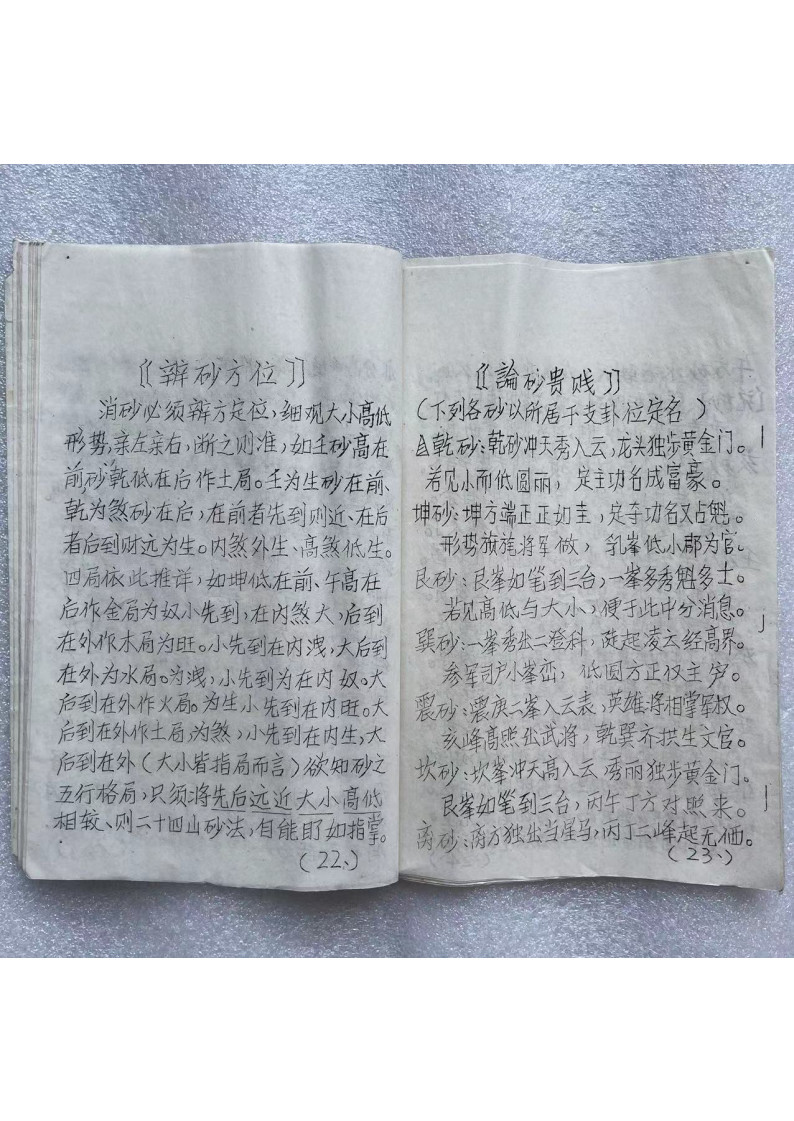 〖辨砂方位〗
消砂必须辨方定位，细观大小高低
形势，亲左亲右，断之则准，如壬砂高在
前，砂乾低在后作土局。壬为生砂在前、
乾为煞砂在后，在前者先到则近、在后
者后到财远为生。内煞外生、高煞低生。
四局依此推详，如坤低在前、午高在
后作金局为奴小先到，在内煞大，后到
在外作木局为旺。小先到在内洩，大后到
在外为水局。为洩，小先到为在内奴。大
后到在外作火局。为生小先到在内旺。大
后到在外作土局，为煞，小先到在内生，大
后到在外（大小皆指局而言）欲知砂之
五行格局，只须将先后远近大小高低
相较、则二十四山砂法，自能盯如指掌。
（22、）
〖論砂贵贱〗
（下列各砂以所居干支卦位定名）
乾砂：乾砂冲天秀入云，龙头独步黄金门。
若见小而低圆丽，定主功名成富豪。
坤砂：坤方端正正如圭，定夺功名又占魁。
形势旗旄将军做，乳峯低小郡为官。
艮砂：艮峯如笔到三台，一峯多秀魁多士。
若见高低与大小，便于此中分消息。
巽砂：一峯秀出二登科，陡起凌云经高界。
参军司户小峯峦，低圆方正仅主
震砂：震庚二峯入云表，英雄将相掌军权。
亥峰高照出武将，乾巽齐拱生文官。
坎砂：坎峯冲天高入云 秀丽独步黄金门。
艮峯如笔到三台，丙午丁方对照来。
离砂：离方独出当星马，丙丁二峰起无
（23、）